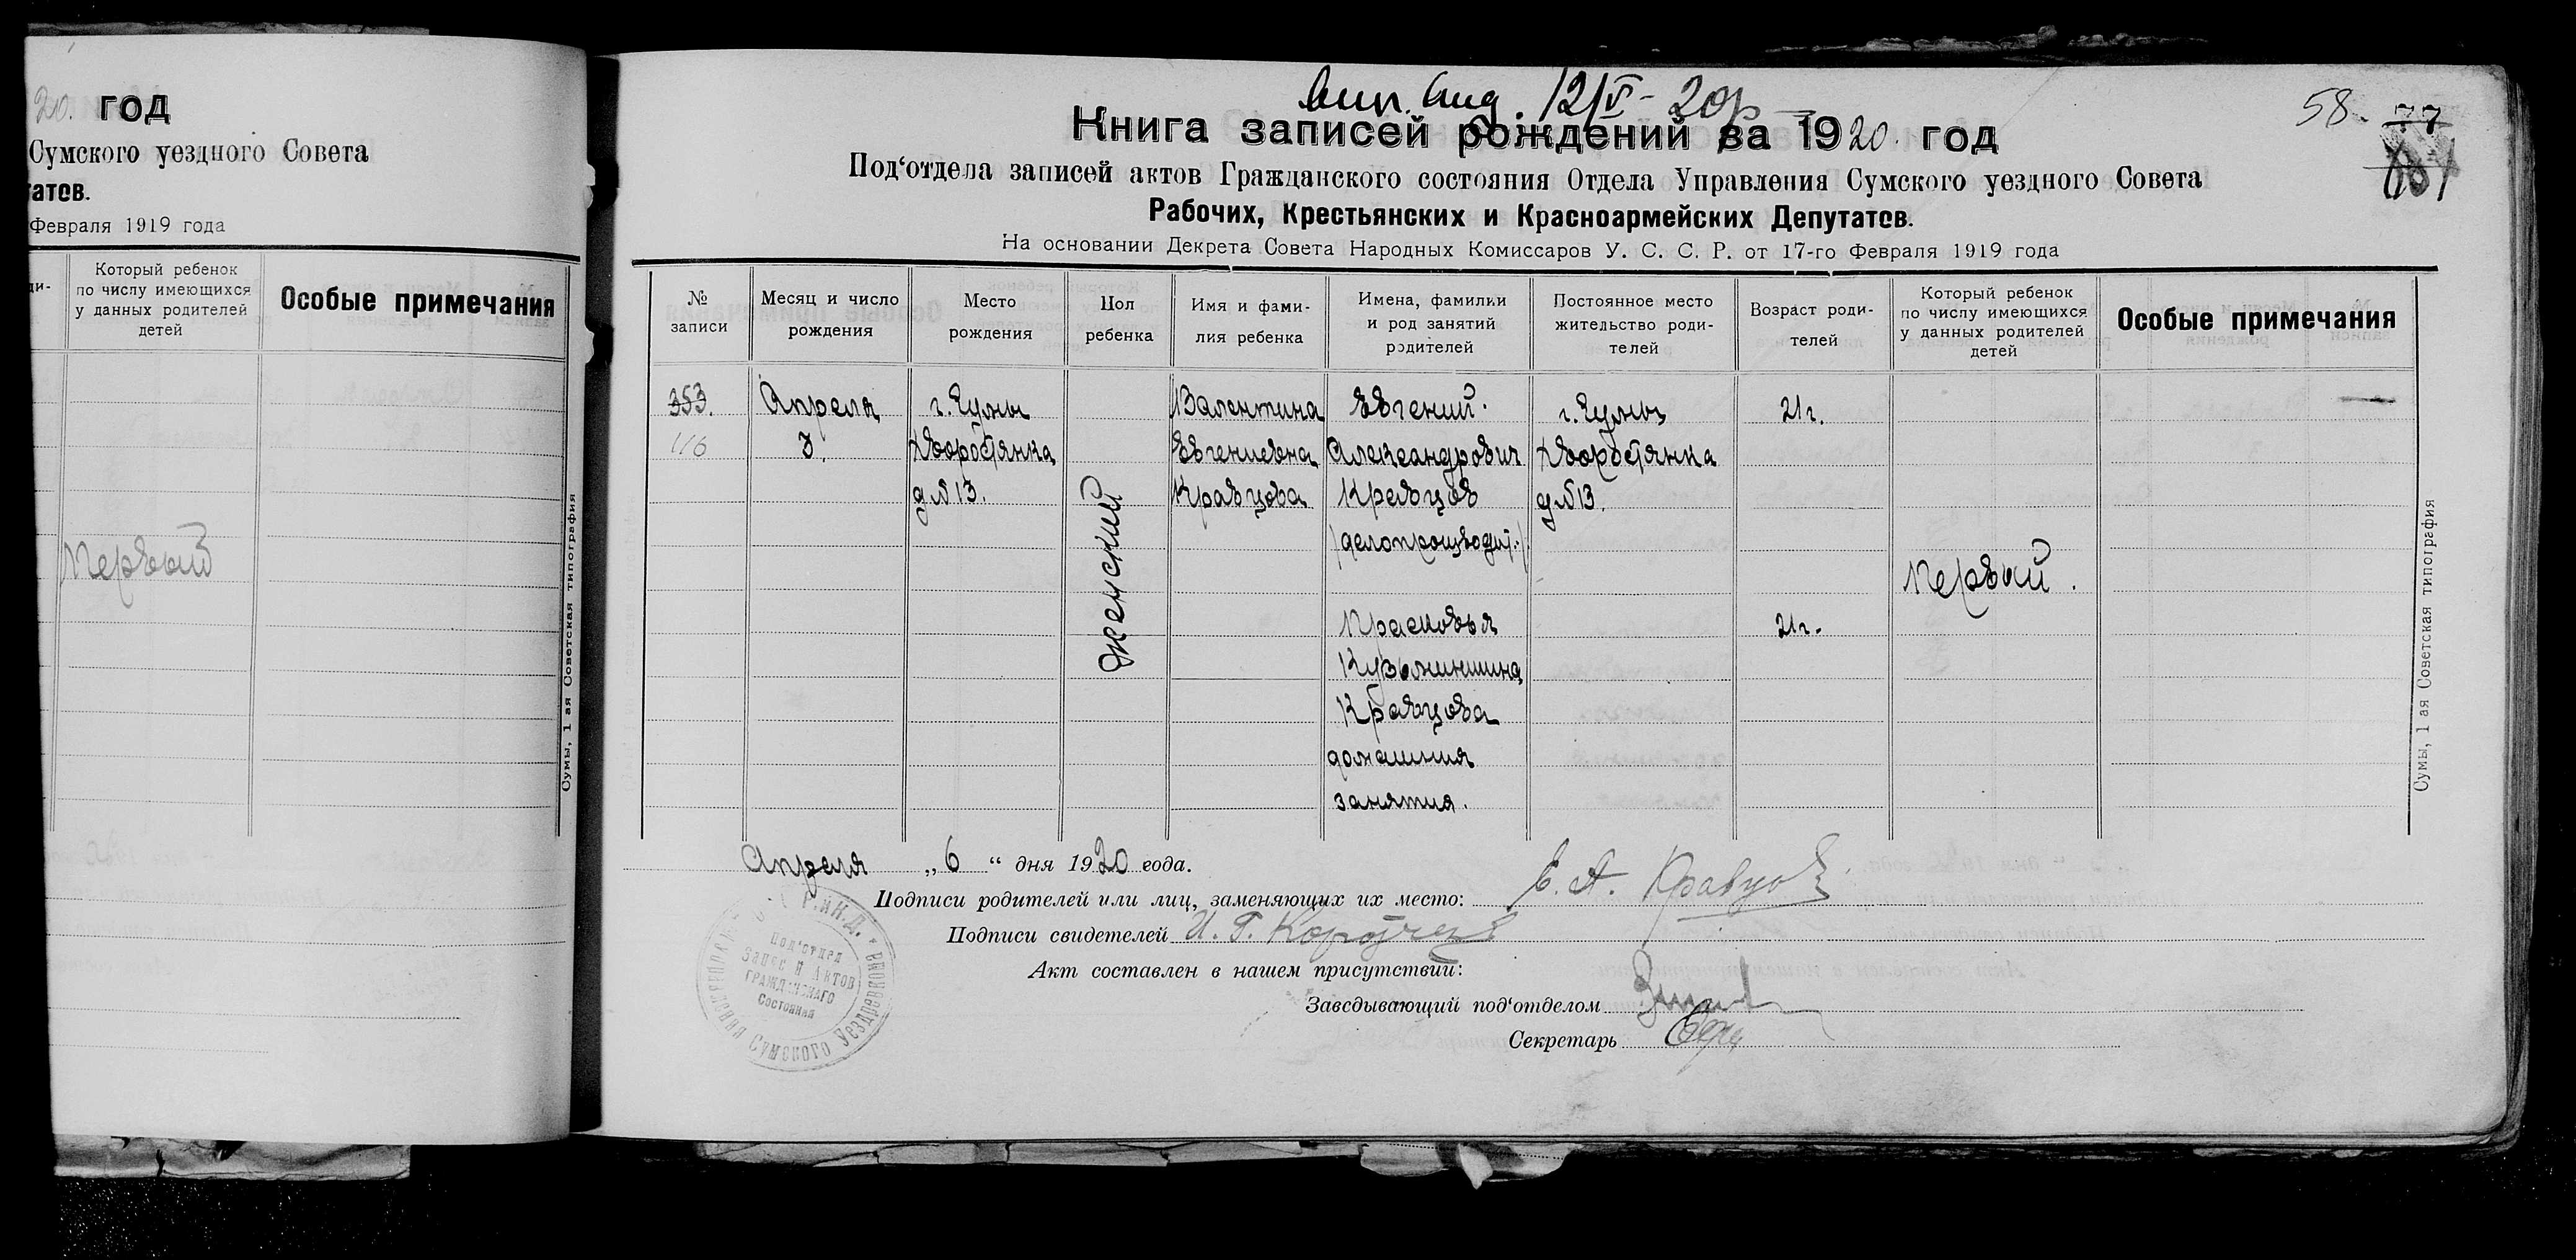 20. год
Сумского уездного Совета
татов.
Февраля 1919 года
ди-
Который ребенок
по числу имеющихся
у данных родителей
детей
Особые примечания
Первый
Сумы, 1 ая Советская типография
12/V - 20
58. 77
Книга записей рождений за 1920. год
Под‘отдела записей актов Гражданского состояния Отдела Управления Сумского уездного Совета
Рабочих, Крестьянских и Красноармейских Депутатов.
На основании Декрета Совета Народных Комиссаров У. С. С. Р. от 17-го Февраля 1919 года
№
записи
Месяц и число
рождения
Место
рождения
Пол
ребенка
Имя и фами-
лия ребенка
Имена, фамилии
и род занятий
родителей
Постоянное место
жительство роди-
телей
Возраст роди-
телей
Который ребенок
по числу имеющихся
у данных родителей
детей
Особые примечания
353.
116
Апреля
3.
г. Сумы
Дворянка
д № 13.
женский
Валентина
Евгениевна
Кравцова
Евгений
Александрович
Кравцов
(делопроизводит.)
Прасковья
Кузьминишна
Кравцова
домашния
занятия.
г. Сумы
д № 13.
21 г.
21 г.
Первый.
Сумы, 1 ая Советская типография
Апреля „6“ дня 1920 года.
Подписи родителей или лиц, заменяющих их место: Е. А. Кравцов
Подписи свидетелей И. Г.
Акт составлен в нашем присутствии:
Заведывающий под‘отделом
Секретарь
Под‘отдел
Запис й Актов
Гражданскаго
Состояния
Сумского Уездревкома